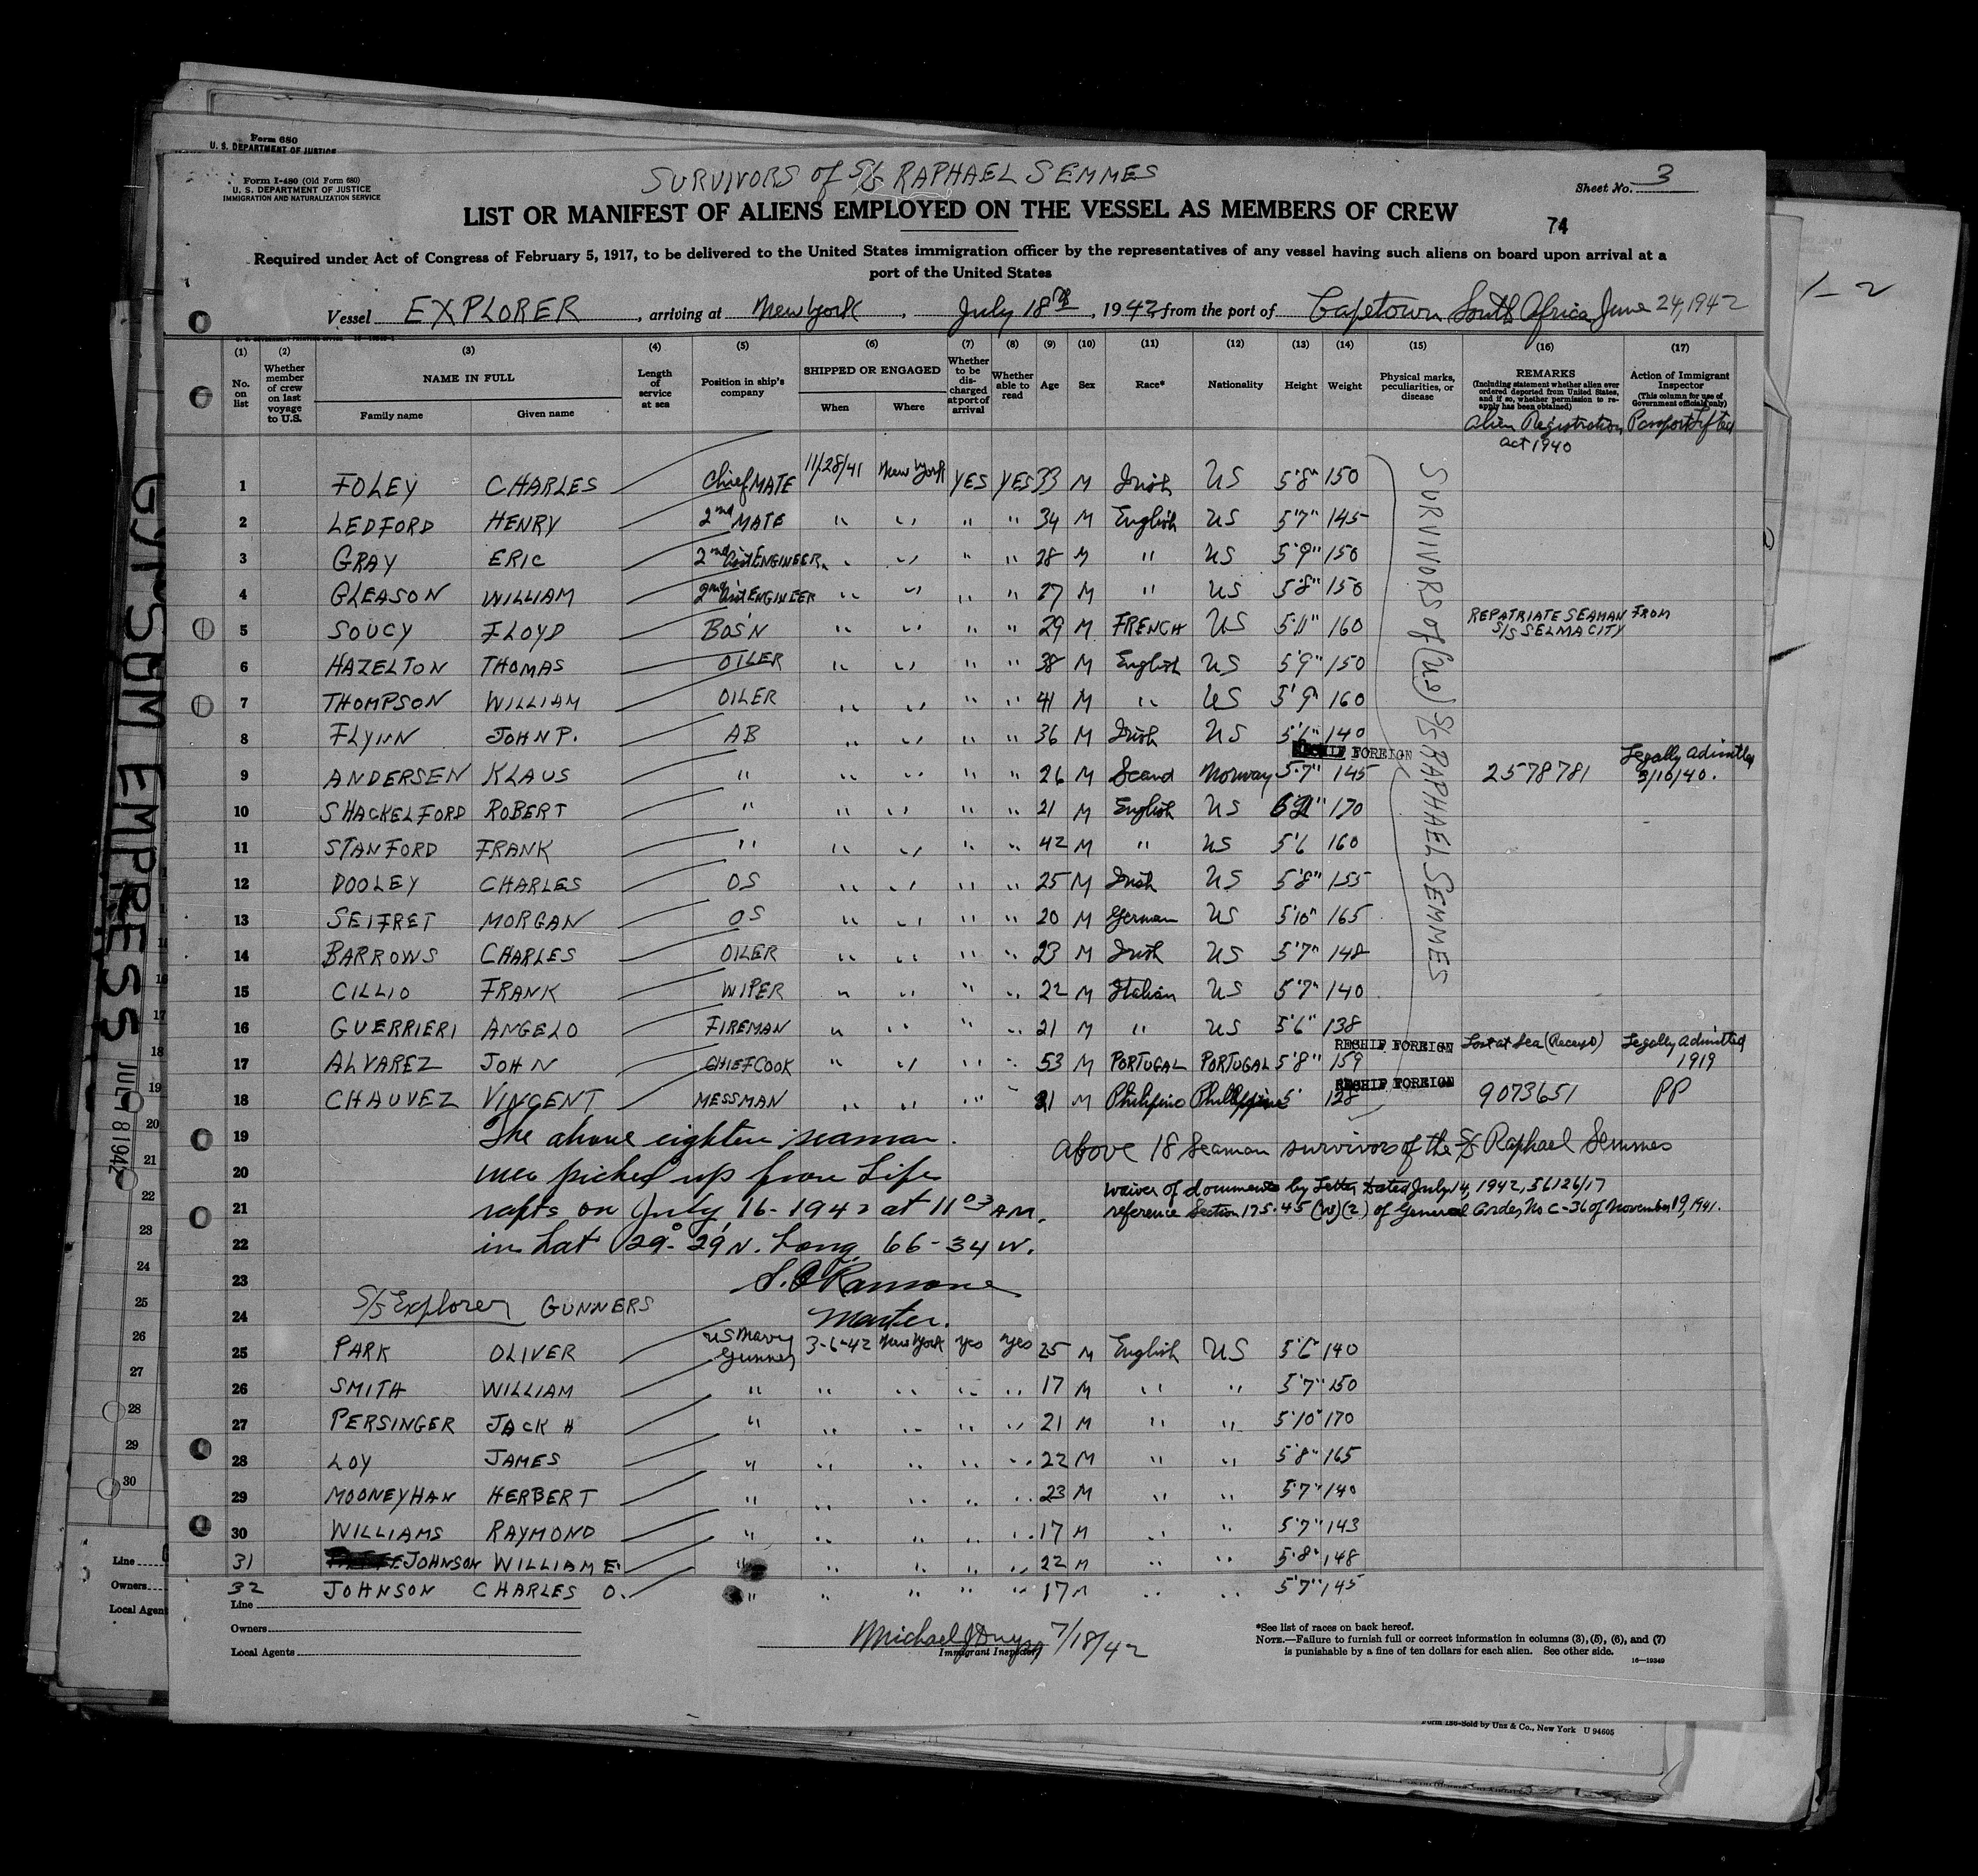 Form 680
U. S. DEPARTMENT OF JUSTICE
Form I-480 (Old Form 680)
U. S. DEPARTMENT OF JUSTICE
IMMIGRATION AND NATURALIZATION SERVICE
SURVIVORS of S/S RAPHAEL SEMMES
Sheet No. 3
LIST OR MANIFEST OF ALIENS EMPLOYED ON THE VESSEL AS MEMBERS OF CREW
74
Required under Act of Congress of February 5, 1917, to be delivered to the United States immigration officer by the representatives of any vessel having such aliens on board upon arrival at a
port of the United States
Vessel EXPLORER, arriving at New York, July 18th, 1942 from the port of Capetown South Africa June 24, 1942
1-2
(1) (2) (3) (4) (5) (6) (7) (8) (9) (10) (11) (12) (13) (14) (15) (16) (17)
No. on list
Whether member of crew on last voyage to U.S.
NAME IN FULL
Family name Given name
Length of service at sea
Position in ship's company
SHIPPED OR ENGAGED
When Where
Whether to be discharged at port of arrival
Whether able to read
Age
Sex
Race*
Nationality
Height
Weight
Physical marks, peculiarities, or disease
REMARKS
(Including statement whether alien ever ordered deported from United States, and if so, whether permission to re-apply has been obtained)
Action of Immigrant Inspector
(This column for use of Government officials only)
Alien Registration Act 1940
1 FOLEY CHARLES Chief MATE 11/28/41 New York YES YES 33 M Irish US 5'8" 150
2 LEDFORD HENRY 2nd MATE " " " " 34 M English US 5'7" 145
3 GRAY ERIC 2nd Asst ENGINEER " " " " 28 M " US 5'9" 150
4 GLEASON WILLIAM 2nd Asst ENGINEER " " " " 27 M " US 5'8" 150
5 SOUCY FLOYD BOS'N " " " " 29 M FRENCH US 5'11" 160 REPATRIATE SEAMAN FROM S/S SELMA CITY
6 HAZELTON THOMAS OILER " " " " 38 M English US 5'9" 150
7 THOMPSON WILLIAM OILER " " " " 41 M " US 5'9" 160
8 FLYNN JOHN P. AB " " " " 36 M Irish US 5'6" 140
RESHIP FOREIGN
9 ANDERSEN KLAUS " " " " " 26 M Scand Norway 5'7" 145 2578781 Legally Admitted 3/10/40.
10 SHACKELFORD ROBERT " " " " " 21 M English US 170
11 STANFORD FRANK " " " " " 42 M " US 5'6 160
12 DOOLEY CHARLES OS " " " " 25 M Irish US 5'8" 155
13 SEIFRET MORGAN OS " " " " 20 M German US 5'10" 165
14 BARROWS CHARLES OILER " " " " 23 M Irish US 5'7" 148
15 CILLIO FRANK WIPER " " " " 22 M Italian US 5'7" 140
16 GUERRIERI ANGELO FIREMAN " " " " 21 M " US 5'6" 138
RESHIP FOREIGN
17 ALVAREZ JOHN CHIEF COOK " " " " 53 M PORTUGAL PORTUGAL 5'8" 159 Lost at Sea Legally Admitted 1919
RESHIP FOREIGN
18 CHAUVEZ VINCENT MESSMAN " " " " 21 M Philipino Philippine 5' 128 9073651 PP
SURVIVORS of (US) S/S RAPHAEL SEMMES
19 The above eighteen seaman.
above 18 Seaman survivors of the S/S Raphael Semmes
20 were picked up from Life
waiver of documents by Letter Dated July 14, 1942, 56126/17
21 rafts on July 16-1942 at 11 03 AM.
reference Section 175.45 (2) of General Order No C-36 of November 19, 1941.
22 in Lat 29°-29' N. Long 66-34 W.
23
24 S/S Explorer GUNNERS
Master.
25 PARK OLIVER US Navy Gunner 3-6-42 New York yes yes 25 M English US 5'6" 140
26 SMITH WILLIAM " " " " " 17 M " " 5'7" 150
27 PERSINGER JACK H " " " " " 21 M " " 5'10" 170
28 LOY JAMES " " " " " 22 M " " 5'8" 165
29 MOONEYHAN HERBERT " " " " " 23 M " " 5'7" 140
30 WILLIAMS RAYMOND " " " " " 17 M " " 5'7" 143
31 JOHNSON WILLIAM E. " " " " " 22 M " " 5'8" 148
32 JOHNSON CHARLES O. " " " " " 17 M " " 5'7" 145
Line
Owners
Local Agents
Michael 7/18/42
Immigrant Inspector
*See list of races on back hereof.
NOTE.—Failure to furnish full or correct information in columns (3), (5), (6), and (7)
is punishable by a fine of ten dollars for each alien. See other side.
16—19349
GYPSUM EMPRESS
JUL 18 1942
16
17
18
19
20
21
22
23
24
25
26
27
28
29
30
Line
Owners
Local Agen
Form 186-Sold by Unz & Co., New York U 94605